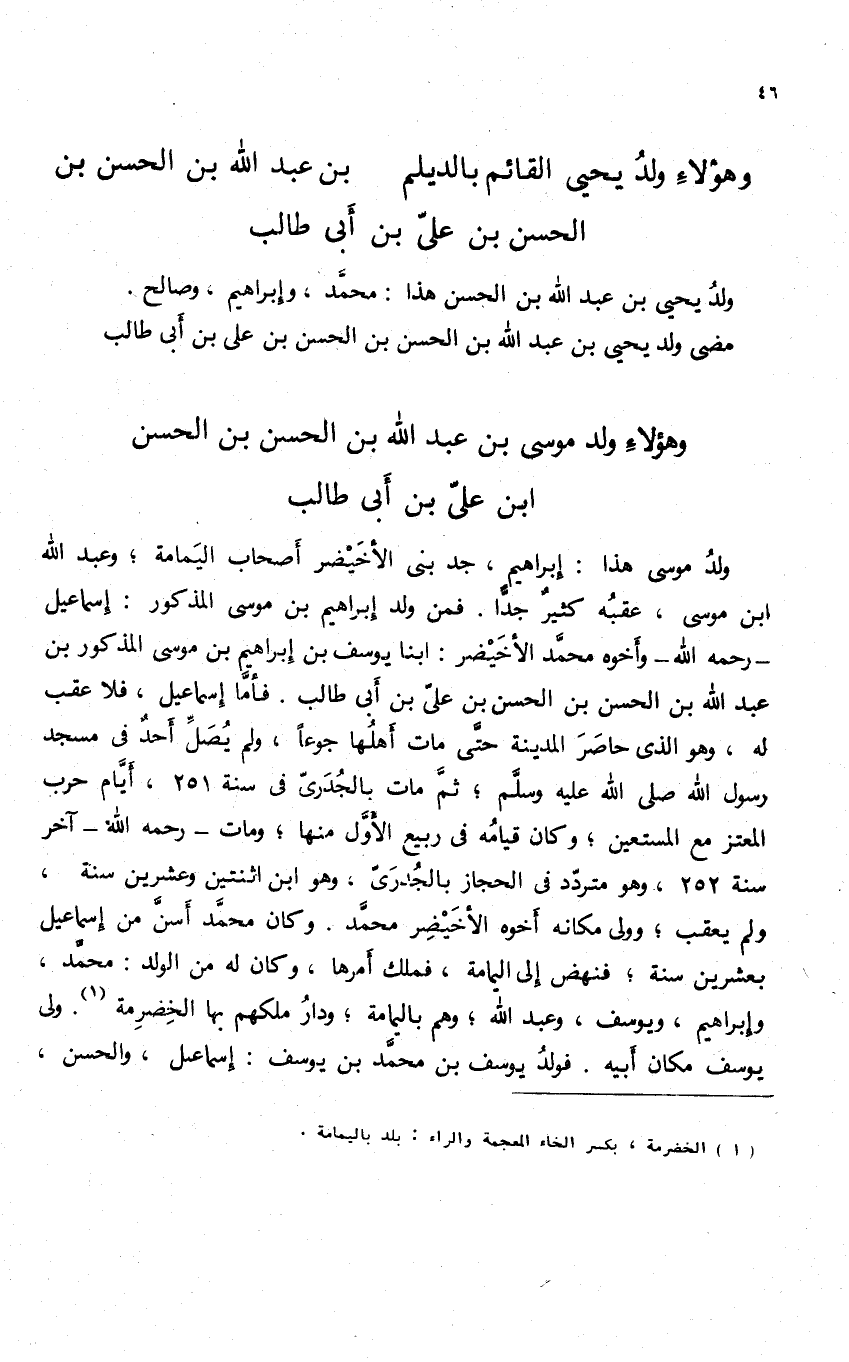 ٤٦
وهؤلاءِ ولدُ يحيى القائم بالديلم بن عبد الله بن الحسن بن
الحسن بن علىّ بن أَبى طالب
ولدُ يحيى بن عبد الله بن الحسن هذا : محمَّد ، وإبراهيم ، وصالح .
مضى ولد يحيى بن عبد الله بن الحسن بن الحسن بن على بن أَبى طالب
وهؤلاءِ ولد موسى بن عبد الله بن الحسن بن الحسن
ابن علىّ بن أَبى طالب
ولدُ موسى هذا : إبراهيم ، جد بنى الأخَيْضر أَصحاب اليَمامة ؛ وعبد الله
ابن موسى ، عقبُه كثيرٌ جدًّا . فمن ولد إبراهيم بن موسى المذكور : إسماعيل
– رحمه الله – وأَخوه محمَّد الأخَيْضر : ابنا يوسف بن إبراهيم بن موسى المذكور بن
عبد الله بن الحسن بن الحسن بن علىّ بن أَبى طالب . فأَمَّا إسماعيل ، فلا عقب
له ، وهو الذى حاصَرَ المدينة حتَّى مات أَهلُها جوعاً ، ولم يُصَلِّ أَحدٌ فى مسجد
رسول الله صلى الله عليه وسلَّم ؛ ثمَّ مات بالجُدَرىّ فى سنة ٢٥١ ، أَيَّام حرب
المعتز مع المستعين ؛ وكان قيامُه فى ربيع الأوَّل منها ؛ ومات – رحمه الله – آخر
سنة ٢٥٢ ، وهو متردّد فى الحجاز بالجُدَرىّ ، وهو ابن اثنتين وعشرين سنة ،
ولم يعقب ؛ وولى مكانه أَخوه الأخَيْضِر محمَّد . وكان محمَّد أَسنَّ من إسماعيل
بعشرين سنة ؛ فنهض إلى اليمامة ، فملك أَمرها ، وكان له من الولد : محمَّد ،
وإبراهيم ، ويوسف ، وعبد الله ؛ وهم باليمامة ؛ ودارُ ملكهم بها الخِضرِمة (١) . ولى
يوسف مكان أَبيه . فولدُ يوسف بن محمَّد بن يوسف : إسماعيل ، والحسن ،
( ١ ) الخضرمة ، بكسر الخاء المعجمة والراء : بلد باليمامة .